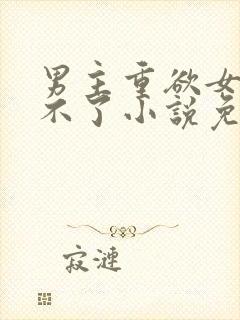 男主重欲女
不了小说免
寂涟